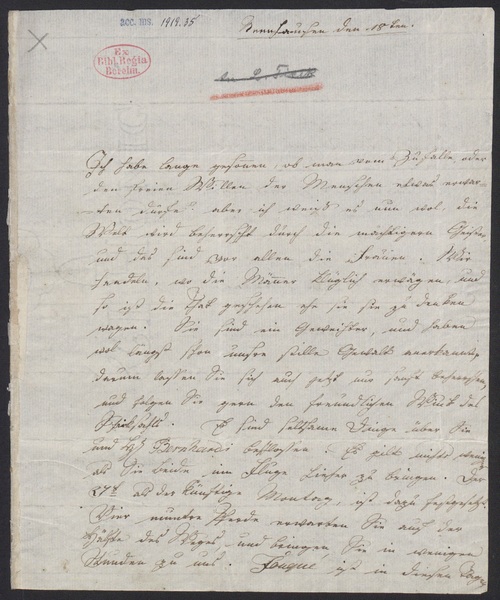 acc. ms. 1919.35
Nennhausen den 18ten.
Ex
Bibl. Regia
Berolin.
Ich habe lange gesonnen, ob man vom Zufalle oder
den freien Willen der Menschen etwas erwar-
ten dürfe: aber ich weiß es nun wol, die
Welt wird beherrscht durch die mächtigern Geister
und das sind vor allen die Frauen. Wir
handeln, wo die Männer klüglich erwägen, und
so ist die That geschehen ehe sie sie zu denken
wagen. Sie sind ein Geweihter, und haben
wol längst schon unsre stille Gewalt anerkannt,
darum lassen Sie sich auch jetzt nur sanft beherrschen,
und folgen Sie gern den freundlichen Wink des
Schicksals. Es sind seltsame Dinge über Sie
und H: Bernhardi beschlossen. Es gilt nichts wenig
als Sie beide im Fluge hieher zu bringen. Der
27t als der künftige Montag, ist dazu festgesetzt.
Vier muntre Pferde erwarten Sie auf der
Hälfte des Weges und bringen Sie in wenigen
Stunden zu uns. Fouqué, ist in diesen Tagen